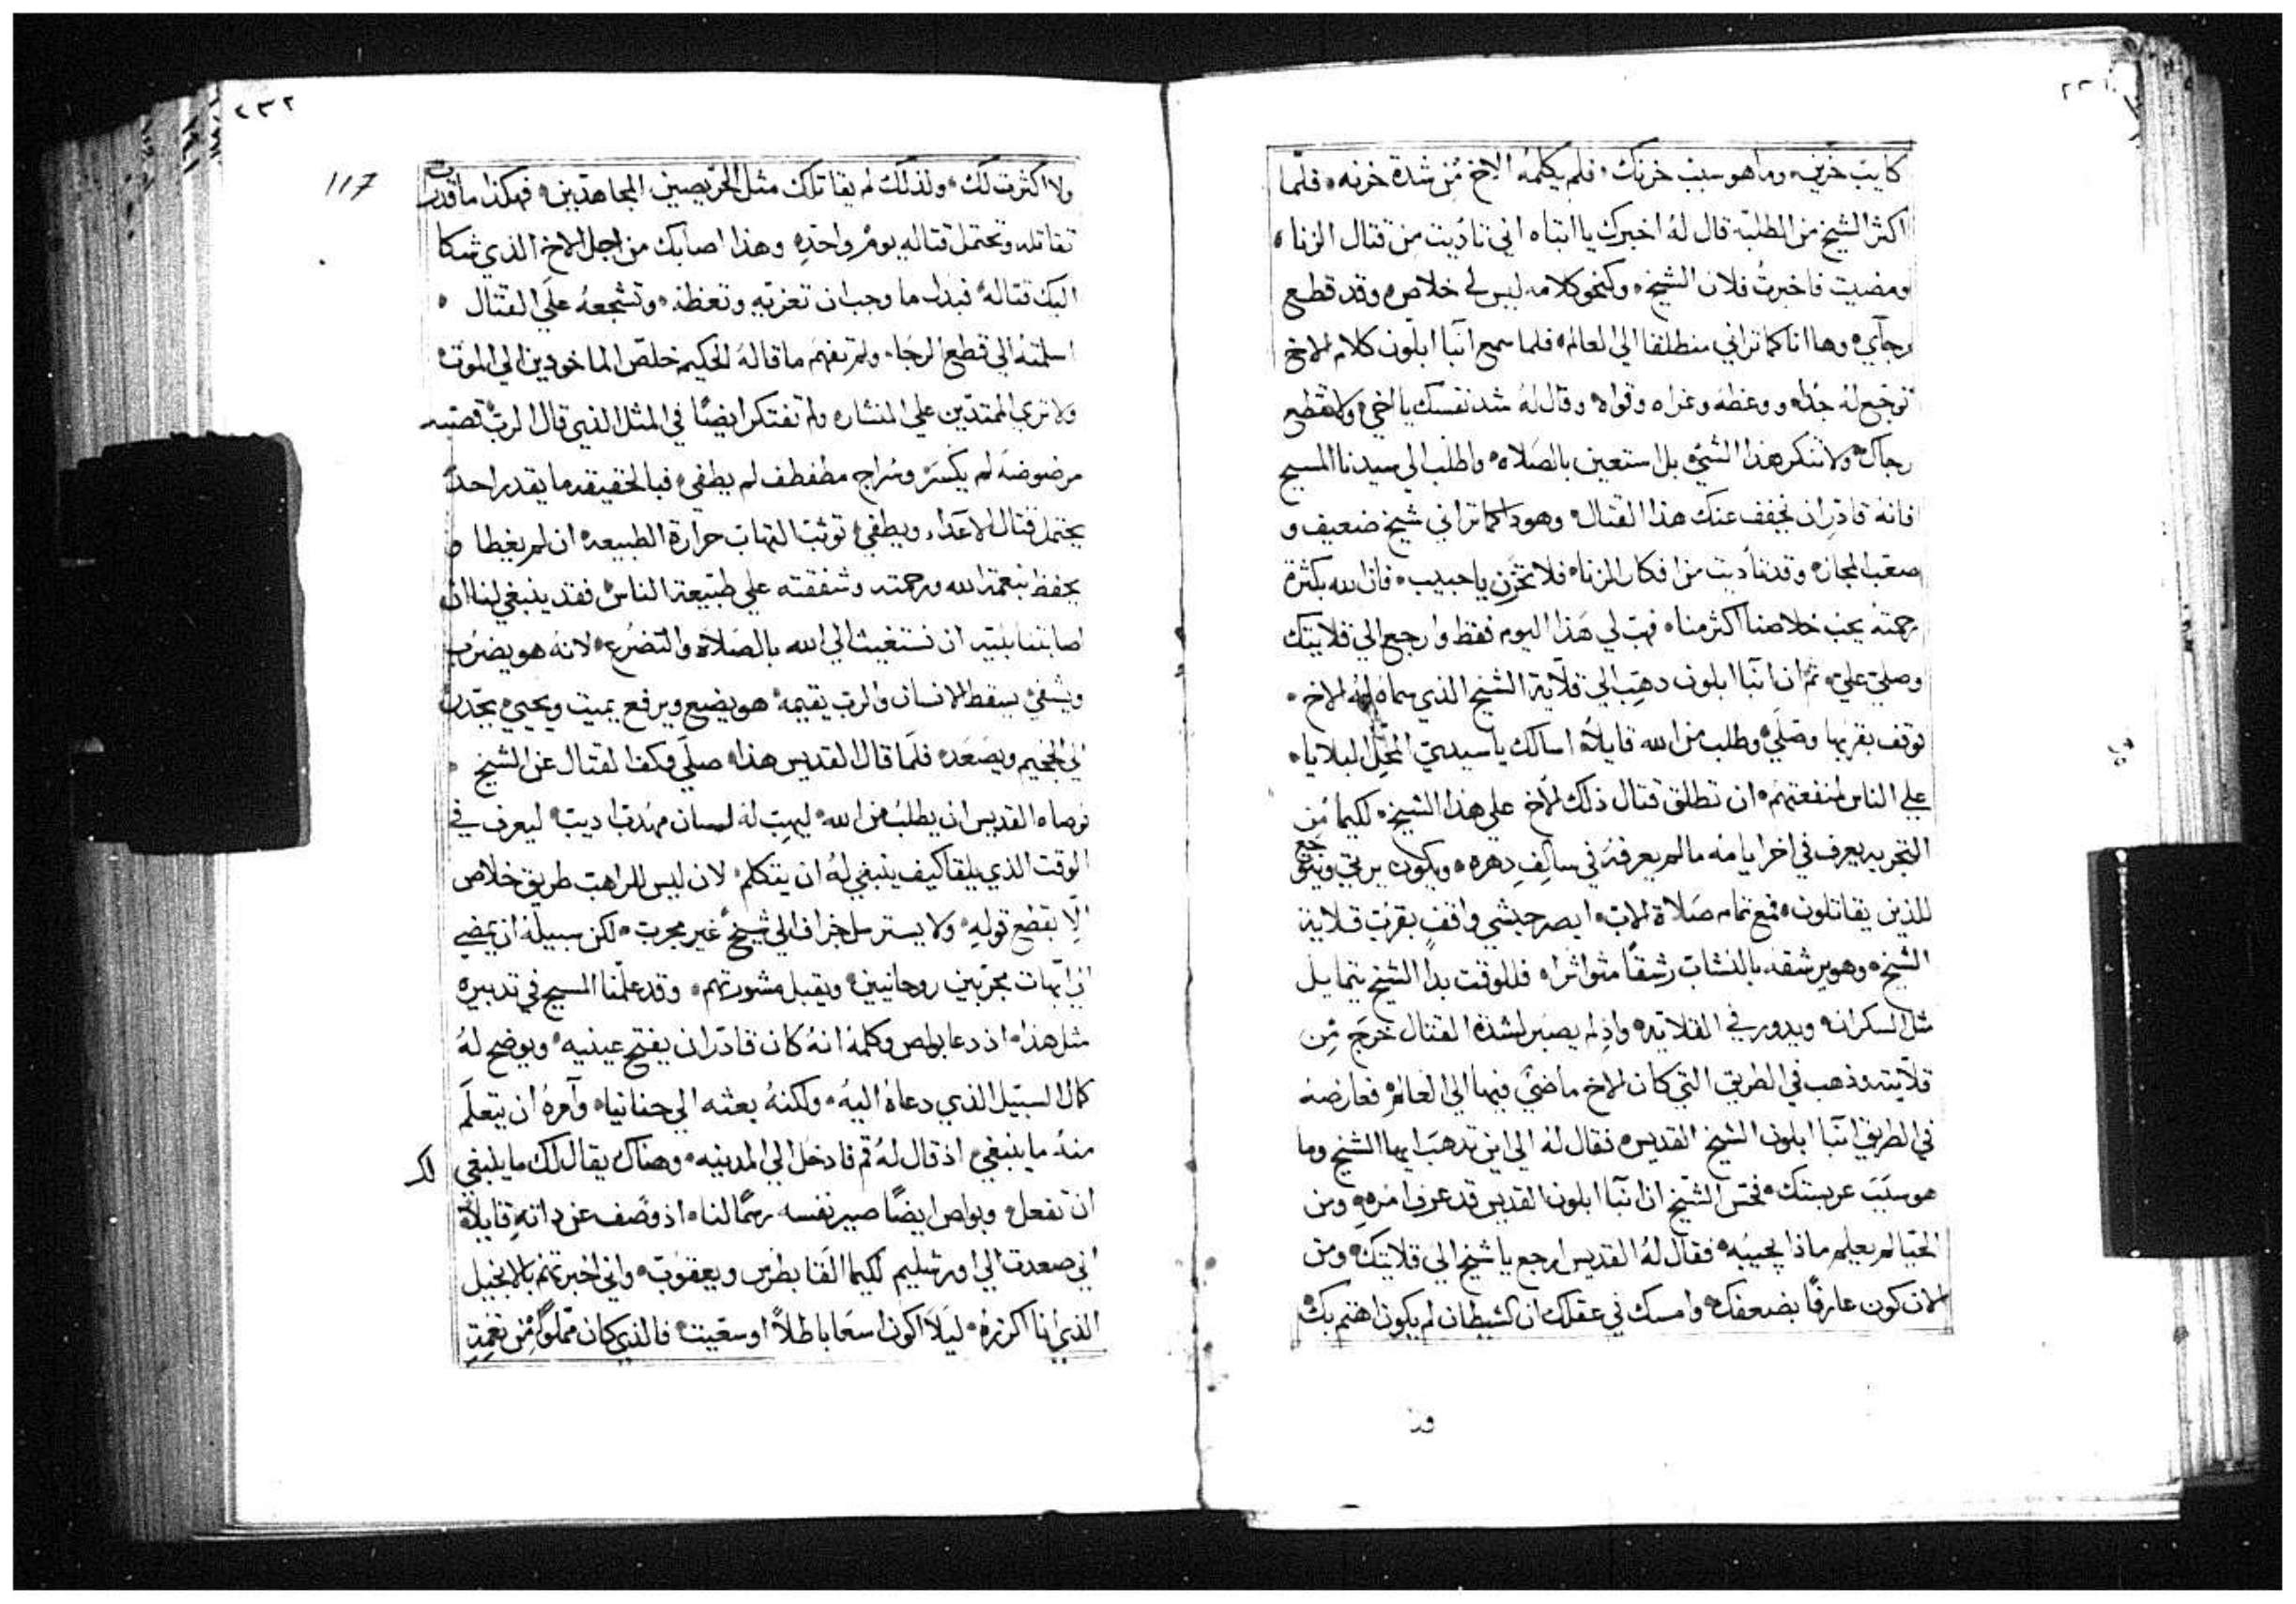 كايب حزين وما هو سبب حزنك فلم يكلمه الاخ من شدة حزنه فلما
اكثر الشيخ من الطلبة قال له اخبرك يا ابتاه اني تاديت من قتال الزنا
ومضيت فاخبرت فلان الشيخ وكنحو كلامه ليس لي خلاص وقد قطع
رجاي وها انا كما تراني منطلقا الي العالم فلما سمع انبا ابلون كلام الاخ
توجع له جدا ووعظه وعزاه وقواه وقال له شد نفسك يا اخي ولا تقطع
رجاك ولا تنكر هذا الشي بل استعين بالصلاه واطلب الي سيدنا المسيح
فانه قادر ان يخفف عنك هذا القتال وهودا كما تراني شيخ ضعيف و
صعب المجاز وقد تاديت من افكار الزنا فلا تحزن يا حبيب فان الله بكثرة
رحمته يحب خلاصنا اكثر منا فهب لي هذا اليوم فقط وارجع الي قلايتك
وصلي علي ثم ان انبا ابلون دهب الي قلاية الشيخ الذي سماه له الاخ
توقف بقربها وصلي وطلب من الله قايلا اسالك يا سيدي المحل البلايا
علي الناس لمنفعتهم ان تطلق قتال ذلك الاخ علي هذا الشيخ لكيما من
التجربه يعرف في اخر ايامه ما لم يعرفه في سالف دهره ويكون يرتي ويتوجع
للذين يقاتلون فمع تمام صلاة الاب ابصر حبشي واقف بقرب قلاية
الشيخ وهو يرشقه بالنشاب رشقا متواترا فللوقت بدا الشيخ يتمايل
مثل السكران ويدور في القلايه واذ لم يصبر لشدة القتال خرج من
قلايته وذهب في الطريق التي كان الاخ ماضي فيها الي العالم فعارضه
في الطريق انبا ابلون الشيخ القديس فقال له الي اين تدهب ايها الشيخ وما
هو سبب عربستك فحس الشيخ ان انبا ابلون القديس قد عرف امره ومن
الحيا لم يعلم ماذا يجيبه فقال له القديس ارجع يا شيخ الي قلايتك ومن
الان كون عارفا بضعفك وامسك في عقلك ان الشيطان لم يكون اهتم بك
ود
٢٣٢
117
ولا اكثرت لك ولذلك لم يقاتلك مثل الحريصين المجاهدين فهكذا ما قدرت
تقاتله وتحتمل قتاله يوم واحده وهذا اصابك من اجل الاخ الذي شكا
اليك قتاله فبدل ما وجب ان تعزيه وتعظه وتشجعه علي القتال
اسلمته الي قطع الرجا ولم تفهم ما قاله الحكيم خلص الماخودين الي الموت
ولا تري الممتدين علي المنشار ولم تفتكر ايضا في المثل الذي قال الرب قصبه
مرضوضه لم يكسر وسراج مطفطف لم يطفي فبالحقيقه ما يقدر احد
يحتمل قتال الاعداء ويطفي توثب التهاب حرارة الطبيعه ان لم يغطا و
يحفظ بنعمة الله ورحمته وشفقته علي طبيعة الناس فقد ينبغي لنا ان
اصابتنا بليه ان نستغيث الي الله بالصلاة والتضرع لانه هو يضرب
ويشفي يسقط الانسان والرب يقيمه هو يضع ويرفع يميت ويحيي يحدر
الي الجحيم ويصعد فلما قال القديس هذا صلي وكف القتال عن الشيخ
فوصاه القديس ان يطلب من الله ليهب له لسان مهدب اديب ليعرف في
الوقت الذي يلقا كيف ينبغي له ان يتكلم لان ليس للراهب طريق خلاص
الا بقطع قوله ولا يسترسل جزاف الي شيخ غير مجرب لكن سبيله ان يمضي
الي ابهات مجربين روحانيين ويقبل مشورتهم وقد علمنا المسيح في تدبيره
مثل هذا اذ دعا بولص وكلمه انه كان قادر ان يفتح عينيه ويوضح له
كمال السبيل الذي دعاه اليه ولكنه بعثه الي حنانيا وامره ان يتعلم
منه ما ينبغي اذ قال له قم فادخل الي المدينه وهناك يقال لك ما ينبغي لك
ان تفعل وبولص ايضا صير نفسه رسما لنا اذ وصف عن داته قايلا
اني صعدت الي اورشليم لكيما القا بطرس ويعقوب واني اخبرتهم بالانجيل
الذي انا اكرزه ليلا اكون اسعا باطلا او سعيت فالذي كان مملوا من نعمة